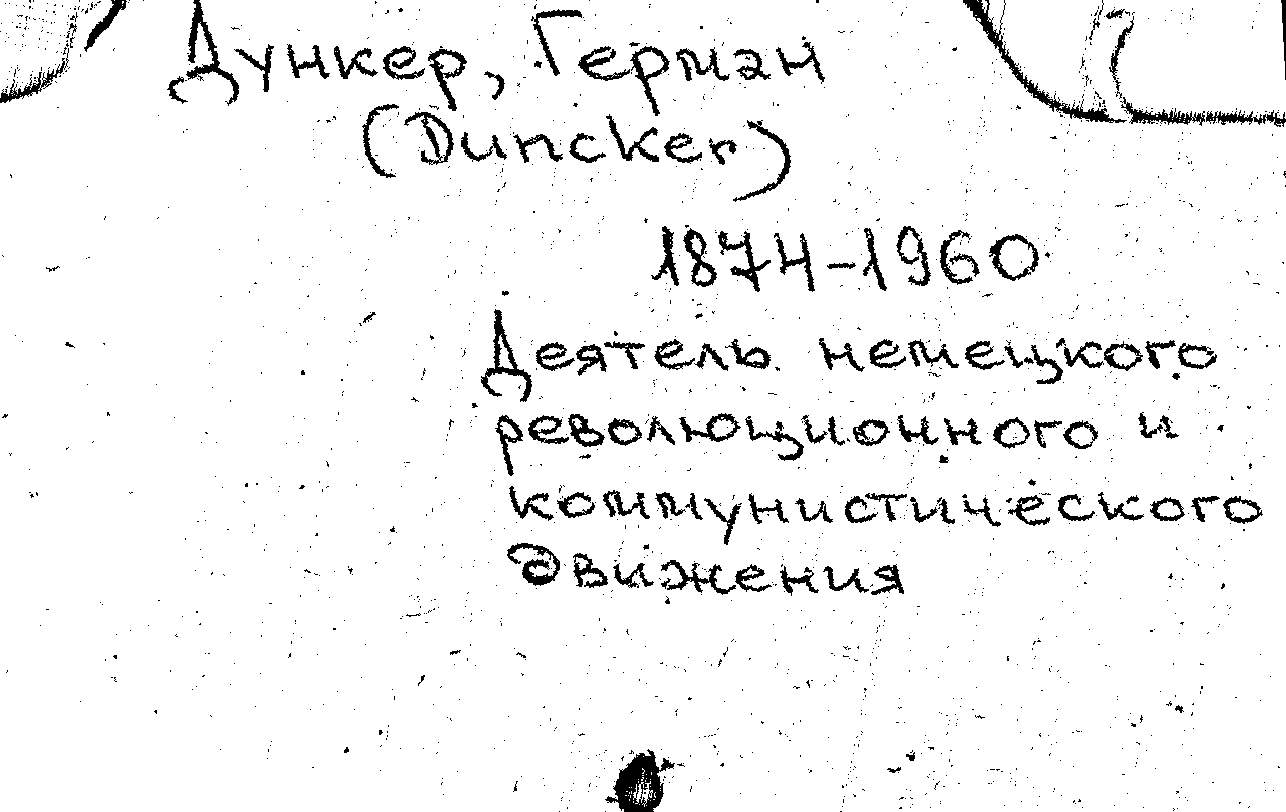 Дункер, Герман
(Duncker)
1874-1960
Деятель немецкого
революционного и
коммунистического
движения